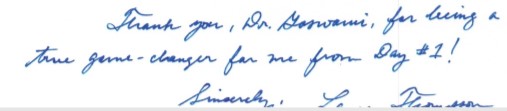 Thank you, Dr. Goswami, for being a
true game-changer for me from Day #1!
Sincerely,